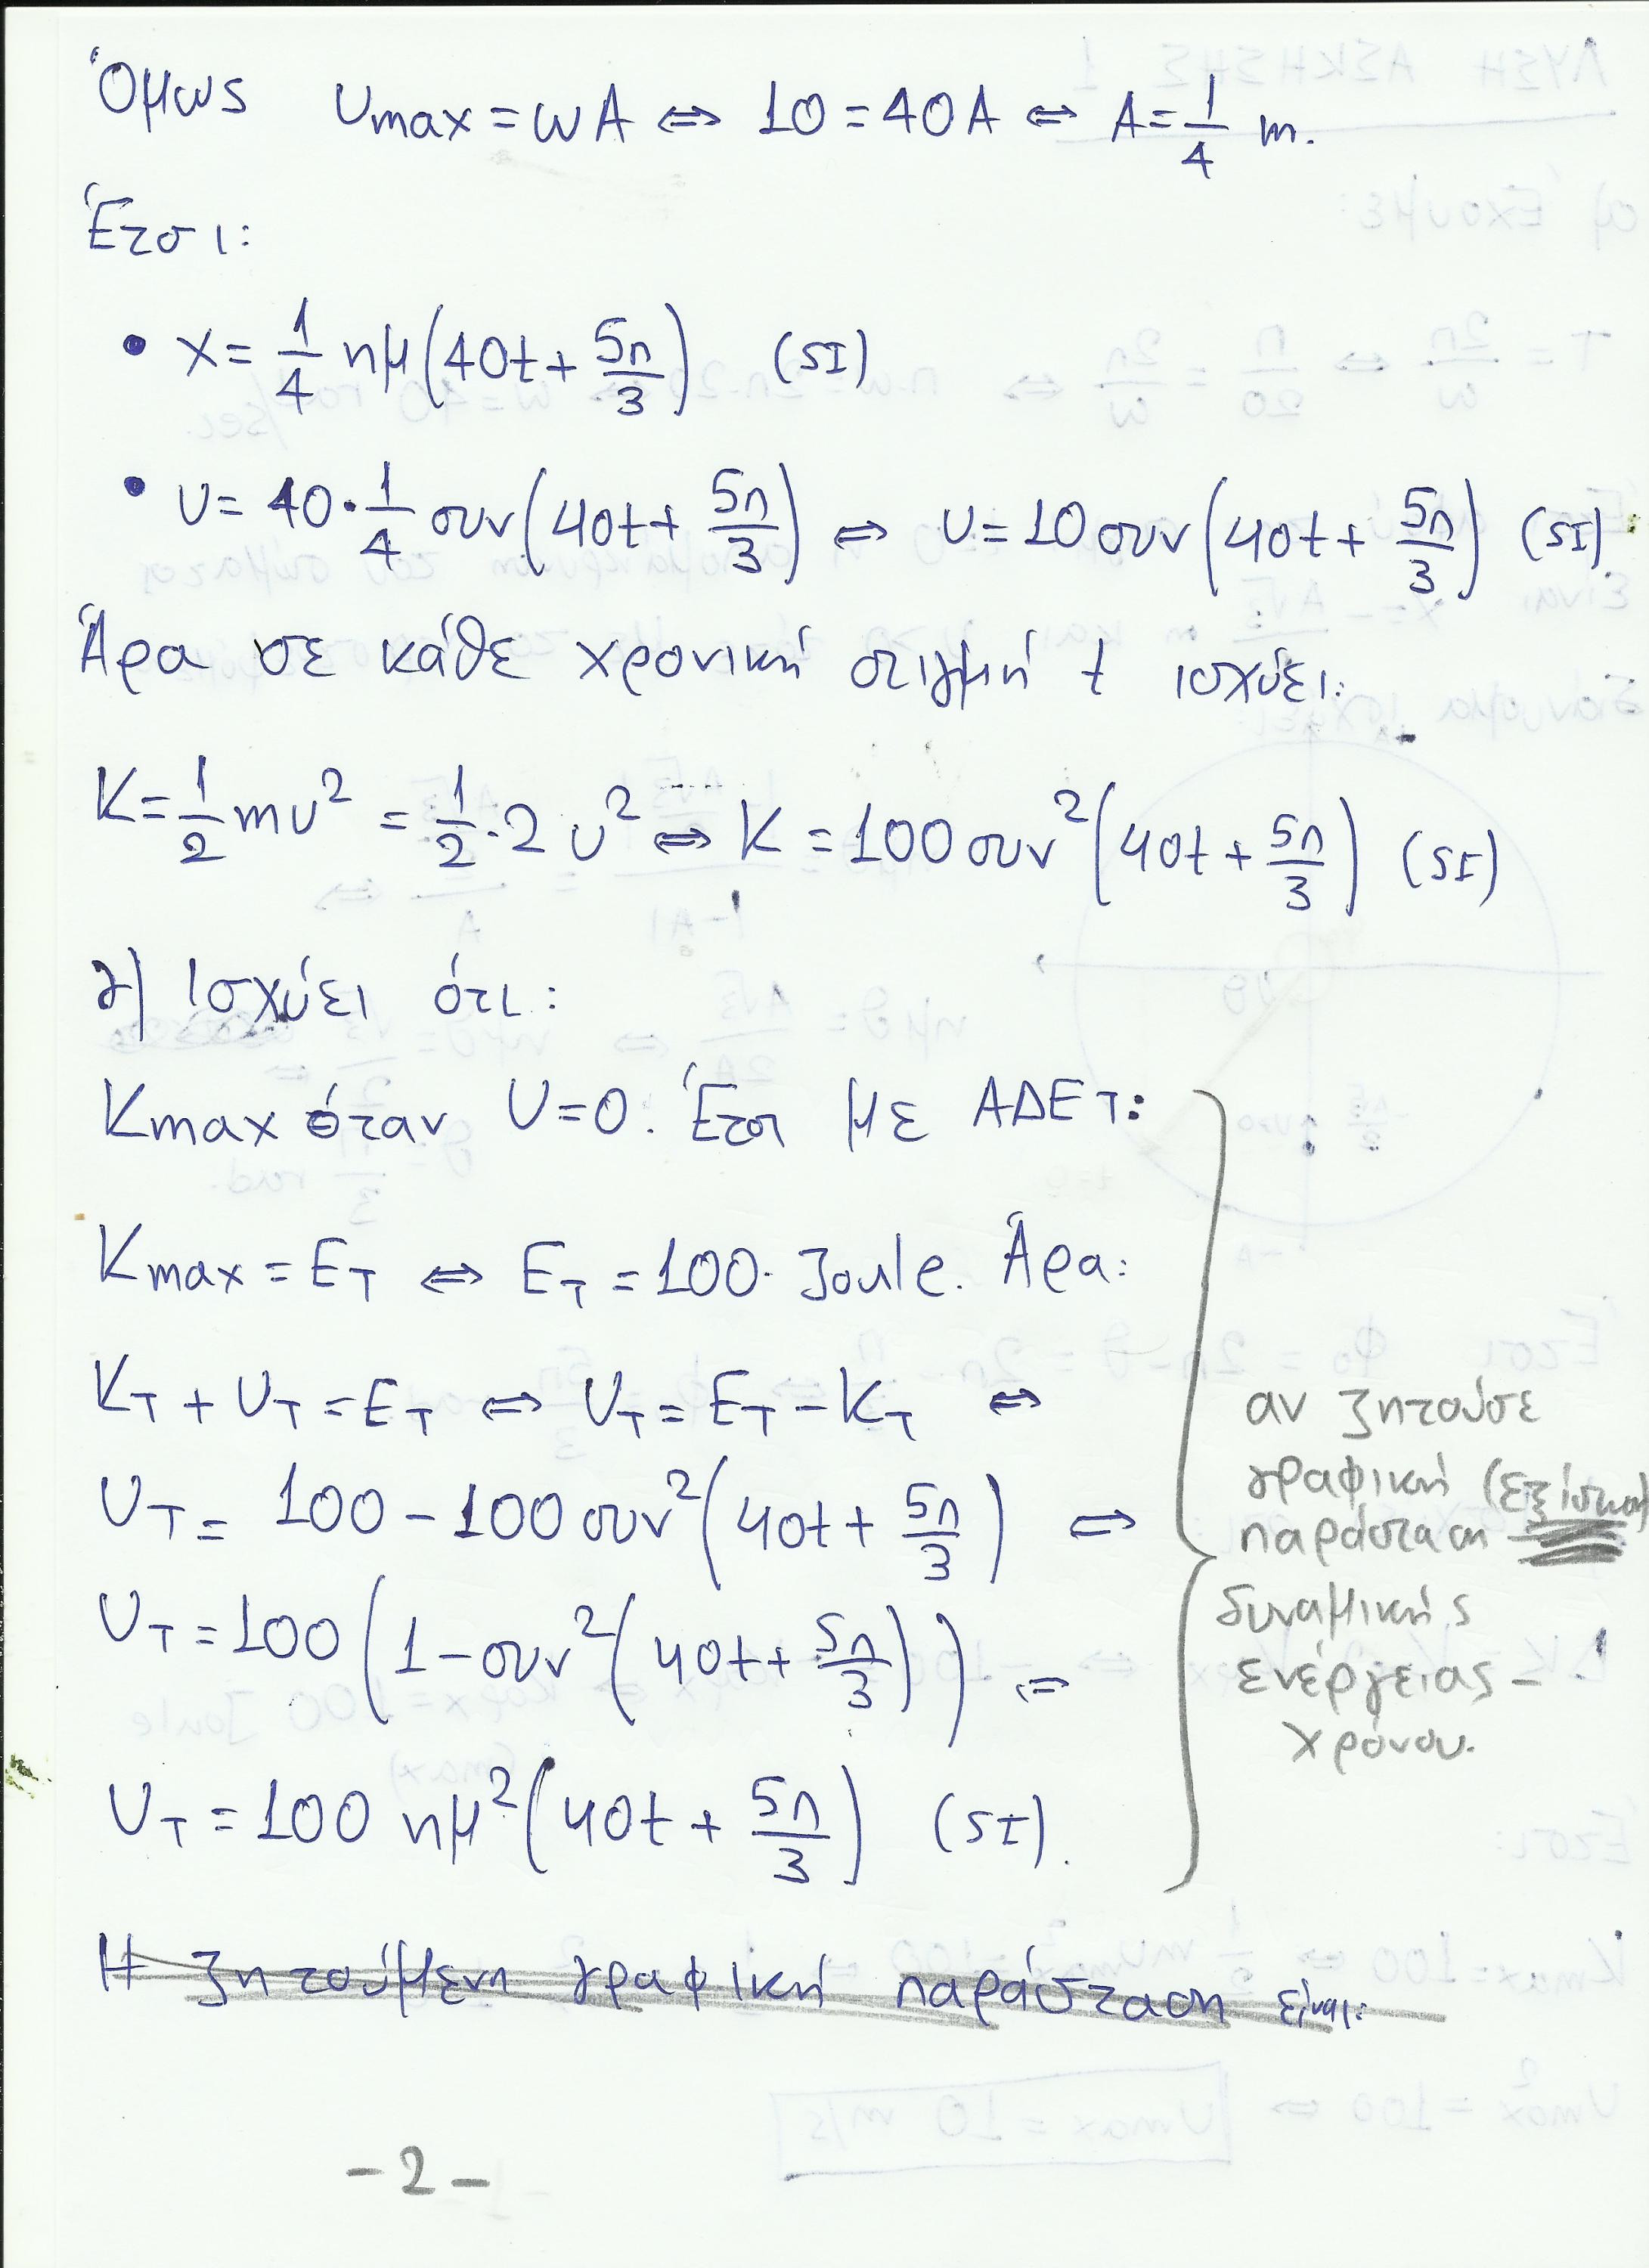 Όμως υmax = ωA ⇔ 10 = 40A ⇔ A = 1/4 m.
Έτσι:
• x = 1/4 ημ(40t + 5π/3) (SI)
• υ = 40·1/4 συν(40t + 5π/3) ⇔ υ = 10συν(40t + 5π/3) (SI).
Άρα σε κάθε χρονική στιγμή t ισχύει:
K = 1/2 mυ² = 1/2·2υ² ⇔ K = 100συν²(40t + 5π/3) (SI)
γ) Ισχύει ότι:
Kmax όταν U=0. Έτσι με ΑΔΕΤ:
Kmax = ET ⇔ ET = 100 Joule. Άρα:
KT + UT = ET ⇔ UT = ET - KT ⇔
UT = 100 - 100συν²(40t + 5π/3) ⇔
UT = 100(1 - συν²(40t + 5π/3)) ⇔
UT = 100 ημ²(40t + 5π/3) (SI).
αν ζητούσε
γραφική (εξίσωση)
παράσταση
δυναμικής
ενέργειας -
χρόνου.
Η ζητούμενη γραφική παράσταση είναι:
-2-